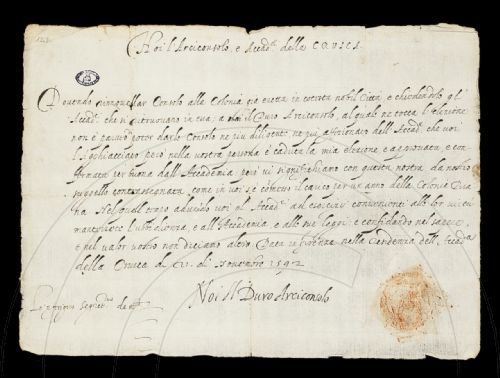 Noi l'Arciconsolo, e Accad.ci della CRUSCA
Dovendo Consolo alla Colonia già eretta in cotesta nobil Città, e chiedendolo gl'
Accad.ci che si ritruovano in essa; a noi il Duro Arciconsolo, al quale ne tocca l'elezione
non è paruto poter darle Consolo ne più diligente, ne più affezionato dell'Accad.a che voi
però nella vostra persona è caduta la mia elezione e, e con
fermata per buona dall'Accademia, però vi significhiamo con questa nostra da nostro
suggello contrassegnata, come in voi si è commesso il carico per un anno della Colonia
na. Nel qual tempo adunerete voi gl'Accad.ci ad esercizi convenienti alle lor virtù
l'ubbidienza, e all'Accademia, e alle sue leggi; e confidando nel sapere,
e nel valor vostro non diciamo altro. Data in Firenze nella residenza dell'Accad.a
della Crusca di Novembre 1592
Noi Il Duro Arciconsolo